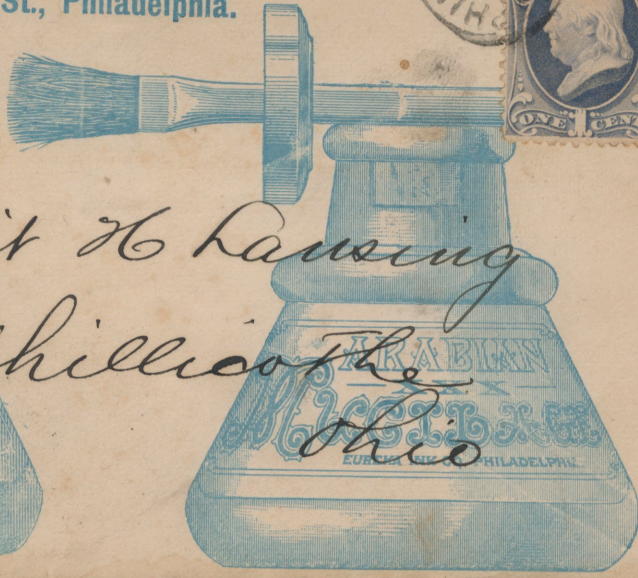 St., Philadelphia.
ONE 1 CENT
H Lansing
hillicothe
Ohio
ARABIAN
MUCILAGE
EUREKA INK CO PHILADELPHI